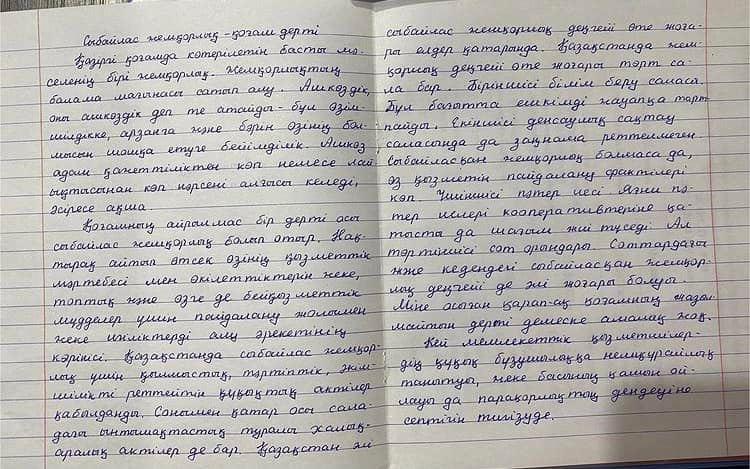 Сыбайлас жемқорлық - қоғам дерті
Қазіргі қоғамда көтерілетін басты мә-
селенің бірі жемқорлық. Жемқорлықтың
балама мағынасы сатып алу. Ашкөздік,
оны ашкөздік деп те атайды - бұл өзім-
шілдікке, арзанға және бәрін өзінің бол-
мысын шошқа етуге бейімділік. Ашкөз
адам қажеттіліктен көп немесе лай
ықтысынан көп нәрсені алғысы келеді,
әсіресе ақша
Қоғамның айрылмас бір дерті осы
сыбайлас жемқорлық болып отыр. Нақ-
тырақ айтып өтсек өзінің қызметтік
мәртебесі мен өкілеттіктерін жеке,
топтық және өзге де бейқызметтік
мүдделер үшін пайдалану жолымен
жеке игіліктерді алу әрекетінің
көрінісі. Қазақстанда сыбайлас жемқор-
лық үшін қылмыстық, тәртіптік, әкім-
шілікті реттейтін құқықтық актілер
қабылданды. Сонымен қатар осы сала-
дағы ынтымақтастық туралы халық-
аралық актілер де бар. Қазақстан әлі
сыбайлас жемқорлық деңгейі өте жоға-
ры елдер қатарында. Қазақстанда жем-
қорлық деңгейі өте жоғары төрт са-
ла бар. Біріншісі білім беру саласы.
Бұл бағытта ешкімді жауапқа тарт
пайды. Екіншісі денсаулық сақтау
саласында да заңнама реттелмеген.
Сыбайласқан жемқорлық болмаса да,
өз қызметін пайдалану фактілері
көп. Үшіншісі пәтер иесі. Яғни пә-
тер иелері кооперативтеріне қа-
тысты да шағым жиі түседі Ал
төртіншісі сот орындары. Соттардағы
және кедендегі сыбайласқан жемқор-
лық деңгейі де әлі жоғары болуы.
Міне осыған қарап-ақ қоғамның жазыл-
майтын дерті демеске амалың жоқ.
Кей мемлекеттік қызметшілер-
дің құқық бұзушылыққа немқұрайлық
танытуы, жеке басының қамын ой-
лауы да парақорлықтың дендеуіне
септігін тигізуде.